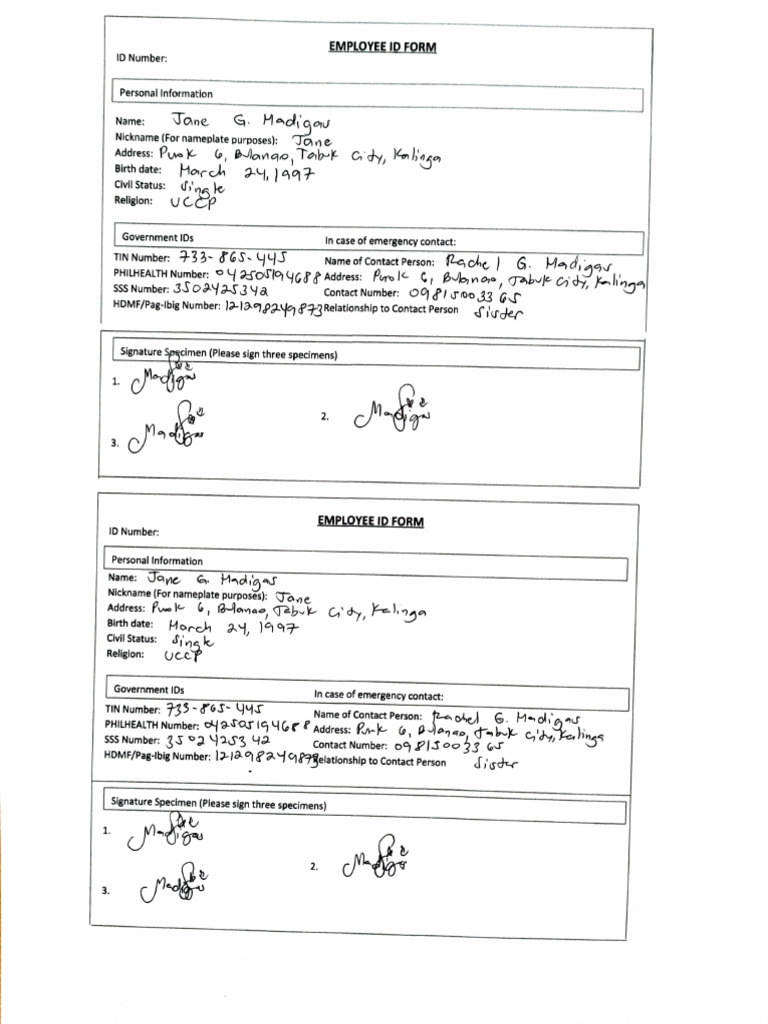 EMPLOYEE ID FORM
ID Number:
Personal Information
Name: Jane G. Madigas
Nickname (For nameplate purposes): Jane
Address: Purok 6, Bulanao, Tabuk City, Kalinga
Birth date: March 24, 1997
Civil Status: Single
Religion: UCCP
Government IDs In case of emergency contact:
TIN Number: 733-865-445 Name of Contact Person: Rachel G. Madigas
PHILHEALTH Number: 042505194688 Address: Purok 6, Bulanao, Tabuk City, Kalinga
SSS Number: 3502425342 Contact Number: 09815003365
HDMF/Pag-Ibig Number: 121298249873 Relationship to Contact Person Sister
Signature Specimen (Please sign three specimens)
1. Madigas
2. Madigas
3. Madigas
EMPLOYEE ID FORM
ID Number:
Personal Information
Name: Jane G. Madigas
Nickname (For nameplate purposes): Jane
Address: Purok 6, Bulanao, Tabuk City, Kalinga
Birth date: March 24, 1997
Civil Status: Single
Religion: UCCP
Government IDs In case of emergency contact:
TIN Number: 733-865-445 Name of Contact Person: Rachel G. Madigas
PHILHEALTH Number: 042505194688 Address: Purok 6, Bulanao, Tabuk City, Kalinga
SSS Number: 3502425342 Contact Number: 09815003365
HDMF/Pag-Ibig Number: 121298249873 Relationship to Contact Person Sister
Signature Specimen (Please sign three specimens)
1. Madigas
2. Madigas
3. Madigas